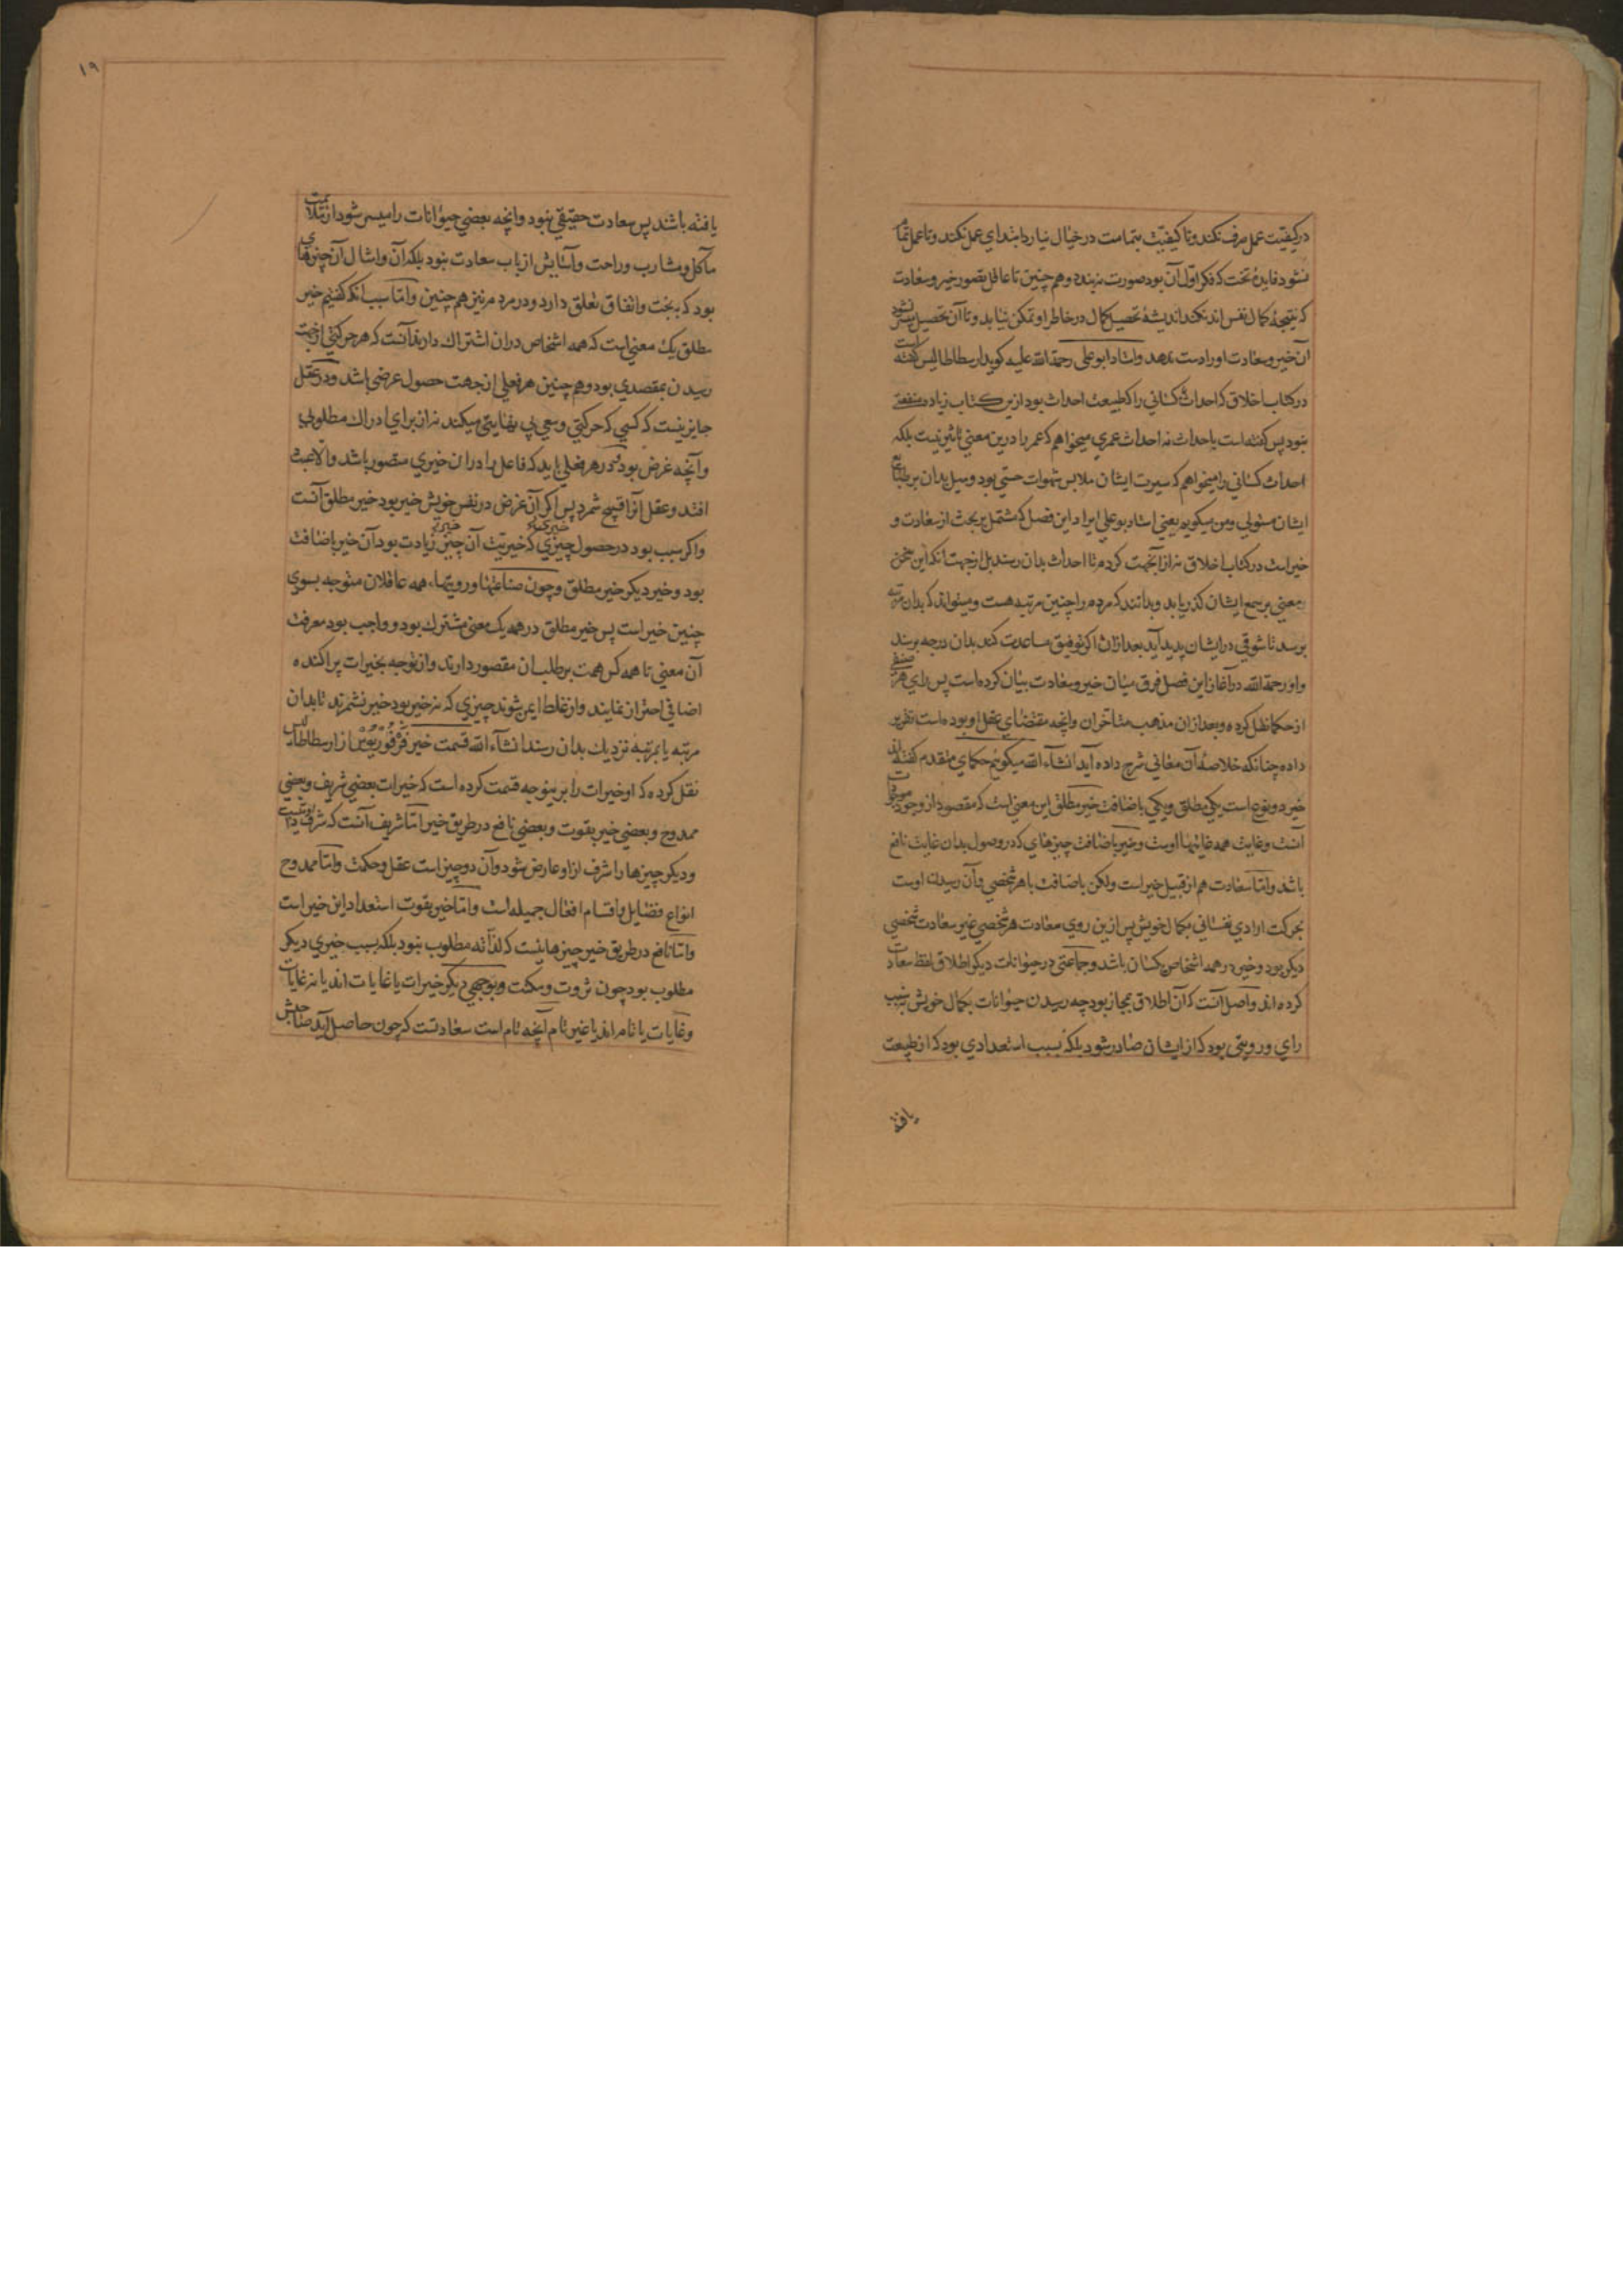 در کیفیت عمل صرف نکند و تا کیفیت بتمامت در خیال نیارد ابتدای عمل نکند و تا عمل تمام
نشود فایدهٔ تخت که فکر اول آن بود صورت نبندد و هم چنین تا عاقل تصور خیر و سعادت
که نتیجهٔ کمال نفس اند نکند اندیشهٔ تحصیل کمال در خاطر او تمکن نیابد و تا آن تحصیل میسر نشود
آن خیر و سعادت او را دست ندهد و استاد ابو علی رحمة الله علیه گوید ارسطاطالیس گفته است
در کتاب اخلاق که احداث کسانی را که طبیعت احداث بود ازین کتاب زیاده منفعتی
نبود پس گفته است باحداث نه احداث عمری میخواهم که عمر را درین معنی تاثیر نیست بلکه
احداث کسانی را میخواهم که سیرت ایشان ملابس شهوات حسی بود و میل بدان بر طبایع
ایشان مستولی و من میگویم یعنی استاد بو علی ایراد این فصل که مشتمل بر بحث از سعادت و
خیر است در کتاب اخلاق نه از آنجهت کردم تا احداث بدان رسند بل از جهت انکه این سخن
معنی بر سمع ایشان گذر یابد و بدانند که مردم را چنین مرتبه هست و میتواند که بدان مرتبه
برسد تا شوقی در ایشان پدید آید بعد ازان اگر توفیق مساعدت کند بدان درجه برسند
و او رحمة الله در آغاز این فصل فرق میان خیر و سعادت بیان کرده است پس رای هر صنفی
از حکما نقل کرده و بعد ازان مذهب متاخران وانچه مقتضای عقل او بوده است تقریر
داده چنانکه خلاصهٔ آن معانی شرح داده آید انشاء الله میگویم حکمای متقدم گفته اند
خیر دو نوع است یکی مطلق و یکی باضافت خیر مطلق این معنی است که مقصود از وجود موجودات
آنست و غایت همه غایتها اوست و خیر باضافت چیزهای که در وصول بدان غایت نافع
باشد و اما سعادت هم از قبیل خیر است ولکن باضافت با هر شخصی و آن رسیدن اوست
بحرکت ارادی نفسانی بکمال خویش پس ازین روی سعادت هر شخصی غیر سعادت شخصی
دیگر بود و خیر در همه اشخاص یکسان باشد و جماعتی در حیوانات دیگر اطلاق لفظ سعادت
کرده اند و اصل آنست که آن اطلاق بمجاز بود چه رسیدن حیوانات بکمال خویش نه بسبب
رای و رویتی بود که از ایشان صادر شود بلکه بسبب استعدادی بود که از طبیعت
یافته
۱۹
یافته باشند پس سعادت حقیقی نبود وانچه بعضی حیوانات را میسر شود از ملایمت
مآکل و مشارب و راحت و آسایش از باب سعادت نبود بلکه آن و امثال آن چیزهای
بود که ببخت و اتفاق تعلق دارد و در مردم نیز هم چنین و اما سبب انکه گفتیم خیر
مطلق یک معنی است که همه اشخاص دران اشتراک دارند آنست که هر حرکتی از جهت
رسیدن بمقصدی بود و هم چنین هر فعلی از جهت حصول غرضی باشد و در عقل
جایز نیست که کسی که حرکتی و سعی بی نهایتی میکند نه از برای ادراک مطلوبی
و آنچه غرض بود در هر فعلی باید که فاعل را دران خیری متصور باشد والا عبث
افتد و عقل آنرا قبیح شمرد پس اگر آن غرض در نفس خویش خیر بود خیر مطلق آنست
و اگر سبب بود در حصول چیزی که خیریت آن چیز زیادت بود آن خیر باضافت
بود و خیر دیگر خیر مطلق و چون صناعتها و رویتهاء همه عاقلان متوجه بسوی
چنین خیر است پس خیر مطلق در همه یک معنی مشترک بود و واجب بود معرفت
آن معنی تا همه کس همت بر طلب آن مقصور دارند و از توجه بخیرات پراکنده
اضافی احتراز نمایند و از غلط ایمن شوند چیزی که نه خیر بود خیر نشمرند تا بدان
مرتبه یا بمرتبه نزدیک بدان رسند انشاء الله قسمت خیر فرفوریوس از ارسطاطالیس
نقل کرده که او خیرات را برینوجه قسمت کرده است که خیرات بعضی شریف و بعضی
ممدوح و بعضی خیر بقوت و بعضی نافع در طریق خیر اما شریف آنست که شرف
و دیگر چیزها را شرف ازو عارض شود و آن دو چیز است عقل و حکمت و اما ممدوح
انواع فضایل و اقسام افعال جمیله است و اما خیر بقوت استعداد این خیر است
و اما نافع در طریق خیر چیزهاییست که لذاته مطلوب نبود بلکه بسبب خیری دیگر
مطلوب بود چون ثروت و مکنت و بوجهی دیگر خیرات یا غایات اند یا نه غایات
و غایات یا تام اند یا غیر تام آنچه تام است سعادتست که چون حاصل آید صاحبش